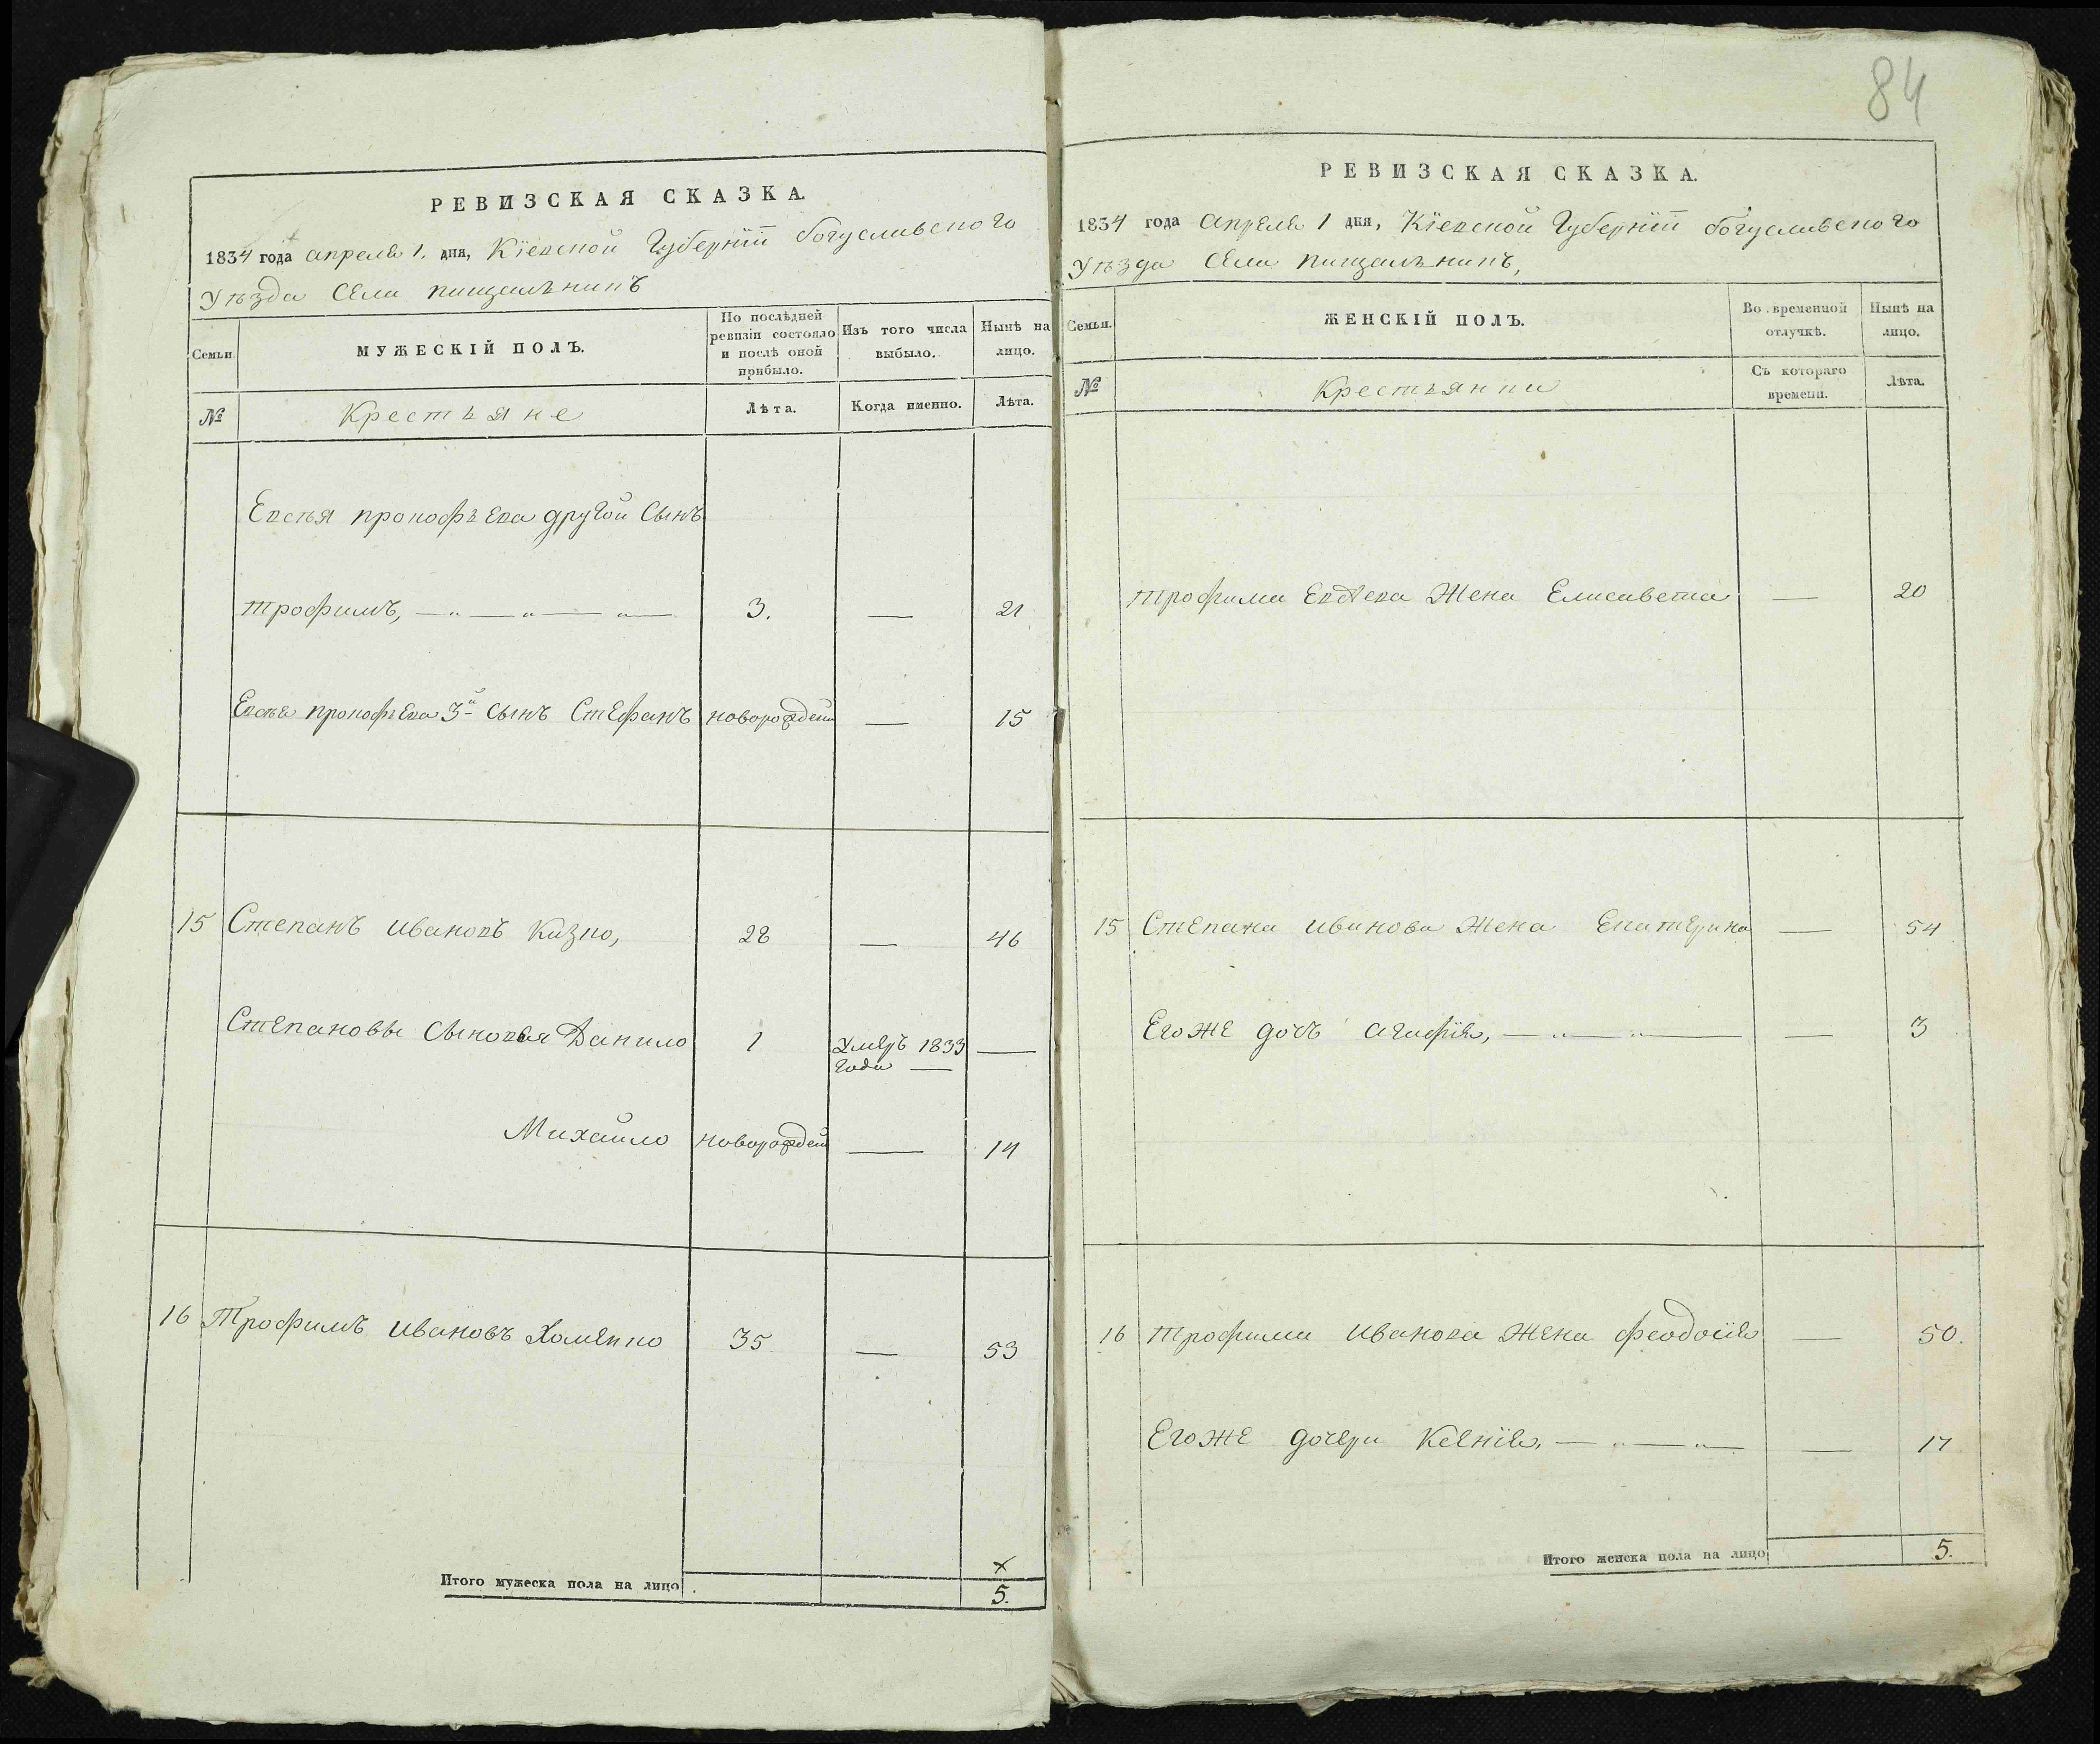 РЕВИЗСКАЯ СКАЗКА.
1834 года апреля 1. дня, Кіевской Губерніи богуславского
Уѣзда Села пищальникъ
Семьи.
МУЖЕСКІЙ ПОЛЪ.
По послѣдней ревизіи состояло и послѣ оной прибыло.
Изъ того числа выбыло.
Нынѣ на лицо.
№
Крестьяне
Лѣта.
Когда именно.
Лѣта.
прокофьева другой Сынъ
трофимъ, 3. — 21
прокофьева 3й сынъ Стефанъ новорожден — 15
15 Степанъ ивановъ Кизко, 28 — 46
Степановы сыновья Данило 1 Умеръ 1833 года — —
Михайло новорожден — 14
16 Трофимъ ивановъ Хоменко 35 — 53
Итого мужеска пола на лицо 5.
84
РЕВИЗСКАЯ СКАЗКА.
1834 года апреля 1 дня, Кіевской Губерніи богуславского
Уѣзда Села пищальникъ,
Семьи.
ЖЕНСКІЙ ПОЛЪ.
Во временной отлучкѣ.
Нынѣ на лицо.
№
Крестьянки
Съ котораго времени.
Лѣта.
трофима Жена Елисавета — 20
15 Степана иванова Жена Екатерина — 54
Егоже дочь агафія, — 3
16 трофима иванова Жена феодосія — 50.
Егоже дочери Ксенія, — 17
Итого женска пола на лицо 5.